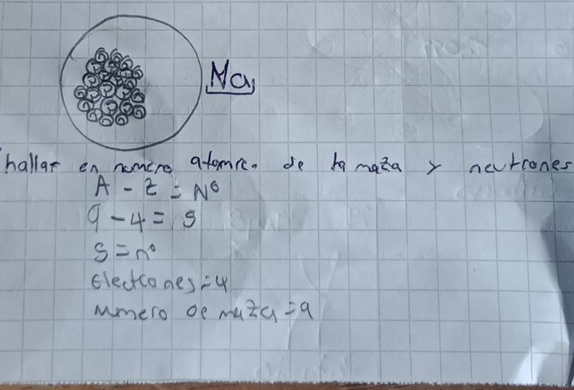 Na
hallar en numero atomico de la maza y neutrones
A - Z = Nº
9 - 4 = 5
5 = nº
Electrones = 4
numero de maza = 9